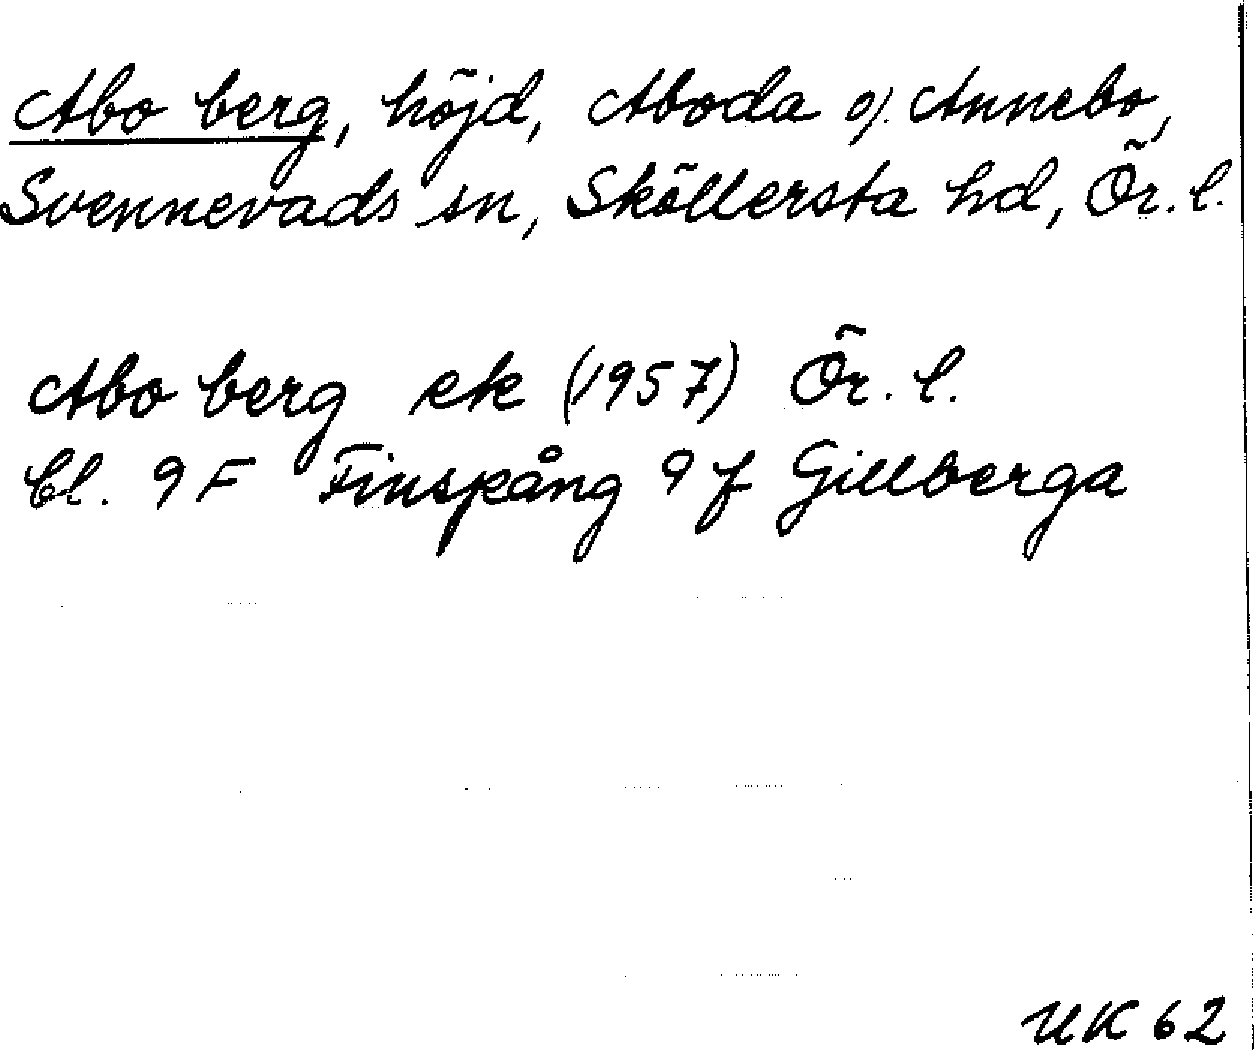 Abo berg, höjd, Aboda o/. Annebo,
Svennevads sn, Sköllersta hd, Ör. l.
Abo berg ek (1957) Ör. l.
Bl. 9 F Finspång 9 f Gillberga
UK 62